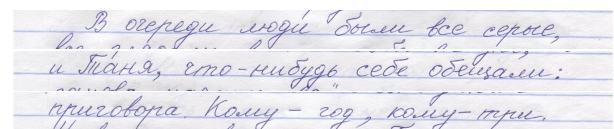 В очереди люди были все серые,
и Таня, что-нибудь себе обещали:
приговора. Кому – год, кому – три.